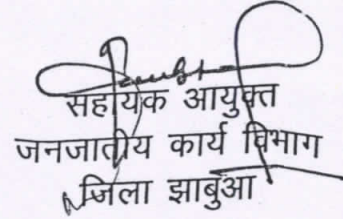 सहायक आयुक्त
जनजातीय कार्य विभाग
जिला झाबुआ